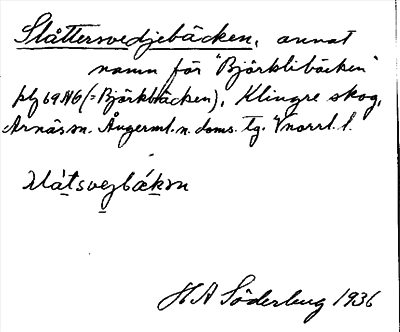 Slåttersvedjebäcken, annat
namn för "Björklibäcken"
(=Björklibäcken), Klingre skog,
Arnäs sn. Ångerml. n. doms. tg. Vnorrl. l.
H A Söderberg 1936